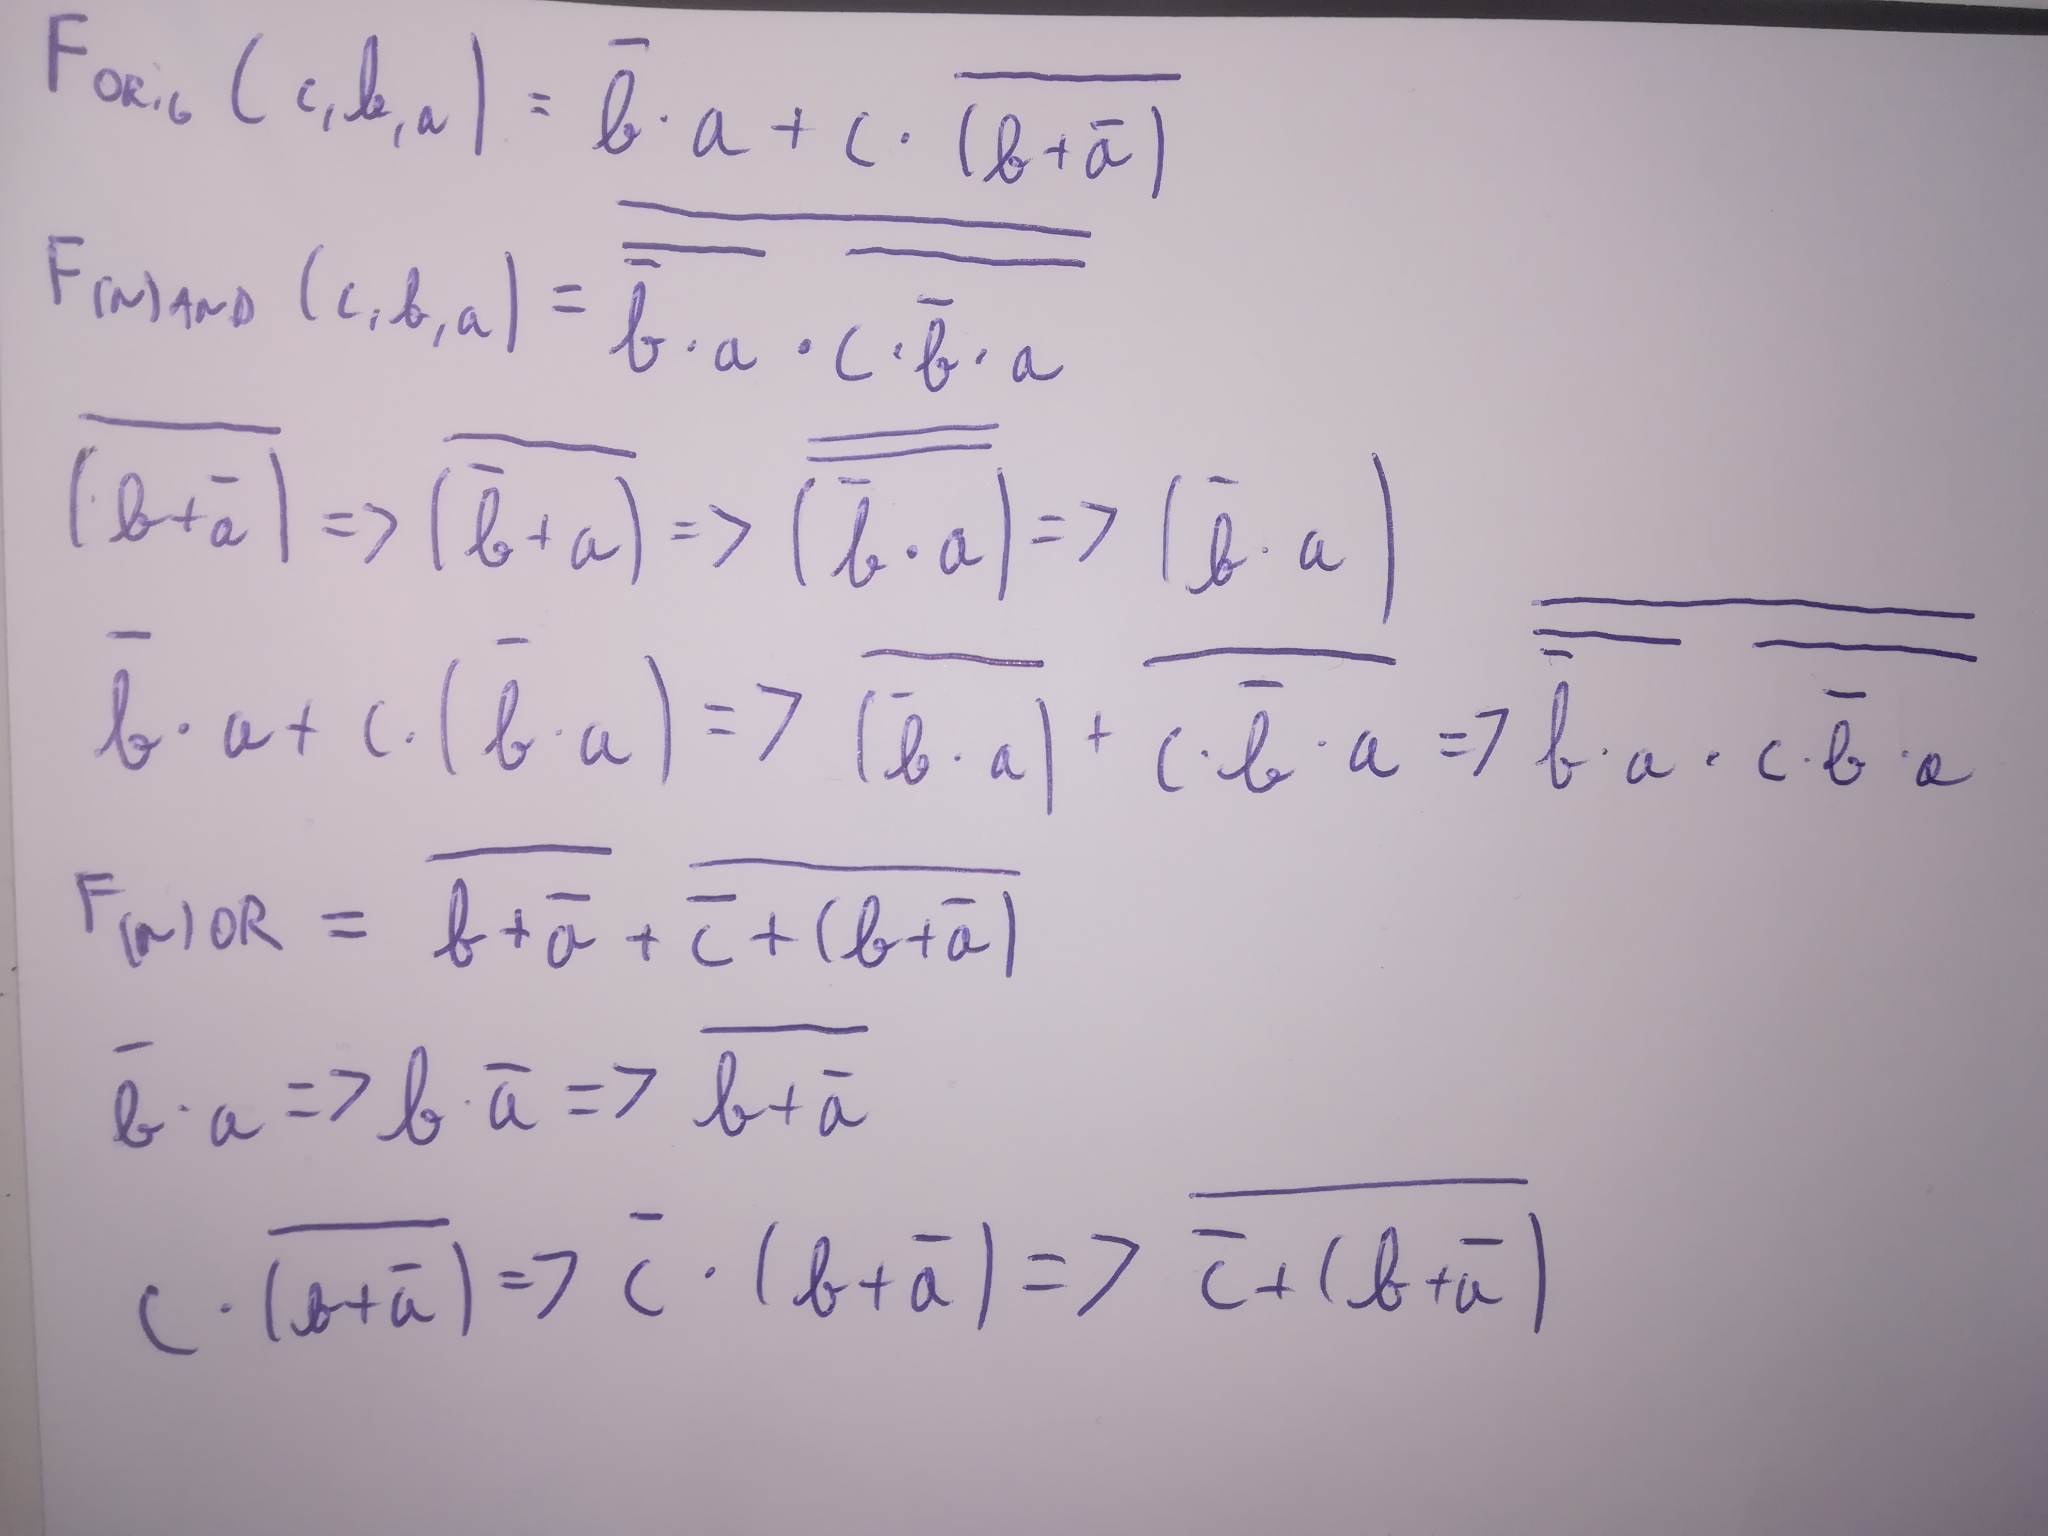 F_ORIG (c,b,a) = b̅·a + c·\overline{(b+a̅)}
F_(N)AND (c,b,a) = \overline{\overline{b̅·a}·\overline{c·b̅·a}}
\overline{(b+a̅)} => \overline{(b̅+a)} => \overline{\overline{(b̅·a)}} => (b̅·a)
b̅·a + c·(b̅·a) => \overline{(b̅·a)} + \overline{c·b̅·a} => \overline{\overline{b̅·a}·\overline{c·b̅·a}}
F_(N)OR = \overline{b+a̅} + \overline{c̅+(b+a̅)}
b̅·a => b·a̅ => \overline{b+a̅}
c·\overline{(b+a̅)} => c̅·(b+a̅) => \overline{c̅+(b+a̅)}